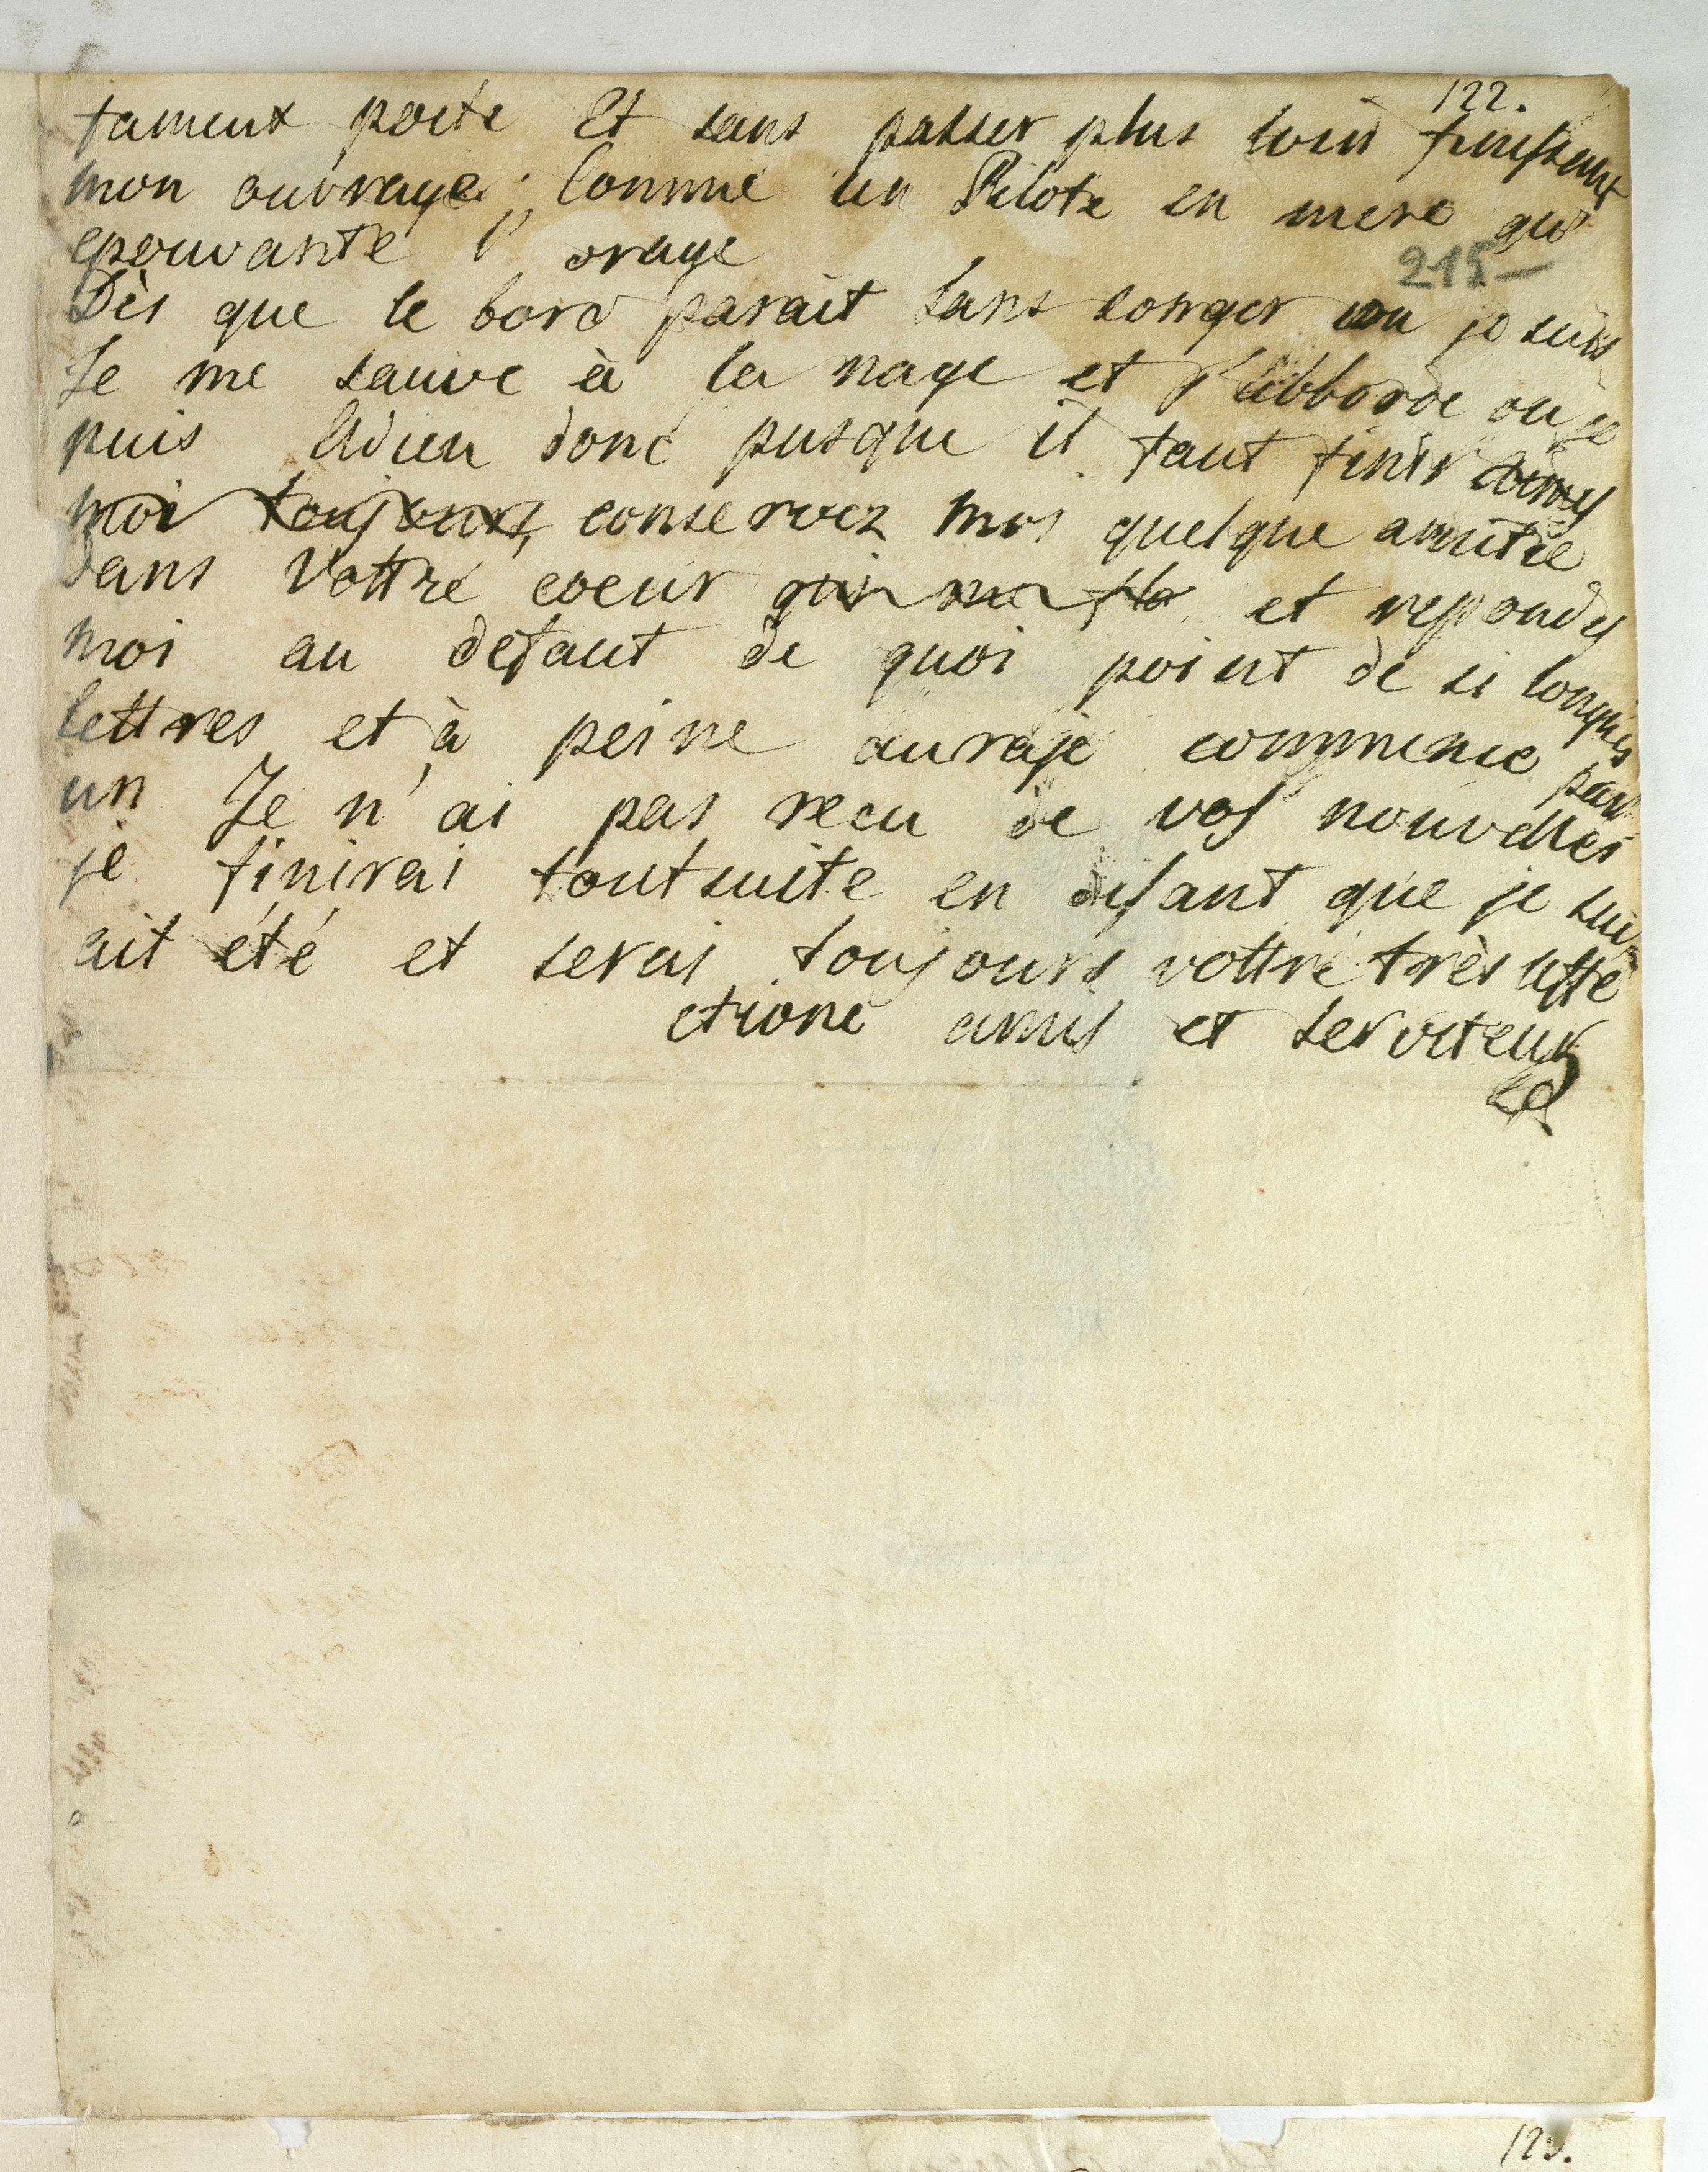 122.
tament porte Et sans passer plus loin finissant
mon ouvrage; Comme un Pilote en mere qu'
epouvante l' orage
215—
Dès que le bord parait sans songer ou je suis
Je me sauve à la nage et j'abborde ou je
puis Adieu donc pusque il faut finir aimes
moi toujours, conservez moi quelque amitie
dans vottre coeur et repondes
moi au defaut de quoi point de si longues
lettres et à peine auraje commence par
un Je n'ai pas recu de vos nouvelles
je finirai toutsuite en disant que je suis
ait été et serai toujours vottre très affe
ctioné amis et serviteur
123.